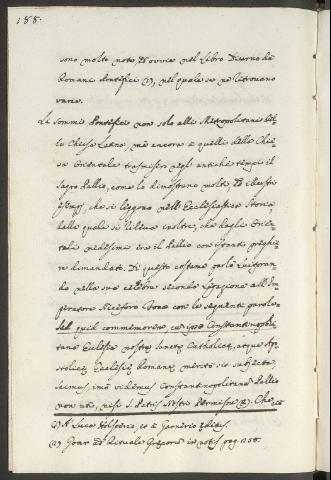 188.
sono molto note, ed ovvie nel Libro Diurno de
Romani Pontifici (1), nel quale se ne ritrovano
varie.
Li sommi Pontefici non solo alli Metropolitani del-
la Chiesa Latina, mà ancora à quelli della Chie-
sa Orientale trasmisero negl' antichi tempi il
Sagro Pallio, come lo dimostrano molti, ed illustri
esempj, che si leggono nell' Ecclesiastica Storia,
dalla quale si rileva inoltre, che dagli Orien-
tali medesimi era il Pallio con istanti preghie-
re dimandato. Di questo costume parla Luitpran-
do nella sua celebre seconda Legazione all' Im-
peratore Niceforo Foca con le seguenti parole:
Sed quid commemorem, cum ipsa Constantinopoli-
tana Ecclesia nostræ sanctæ Catholicæ, atque Apo-
stolicæ Ecclesiæ Romanæ meritò sit subjecta,
scimus, imò videmus Constantinopolitanum Pallio
non uti, nisi S. Patris Nostri Permissu (2). Che se
(1) A Luca Holstenio, et à Garnerio editus.
(2) Goar ad Rituale Græcorum in notis pag. 258.